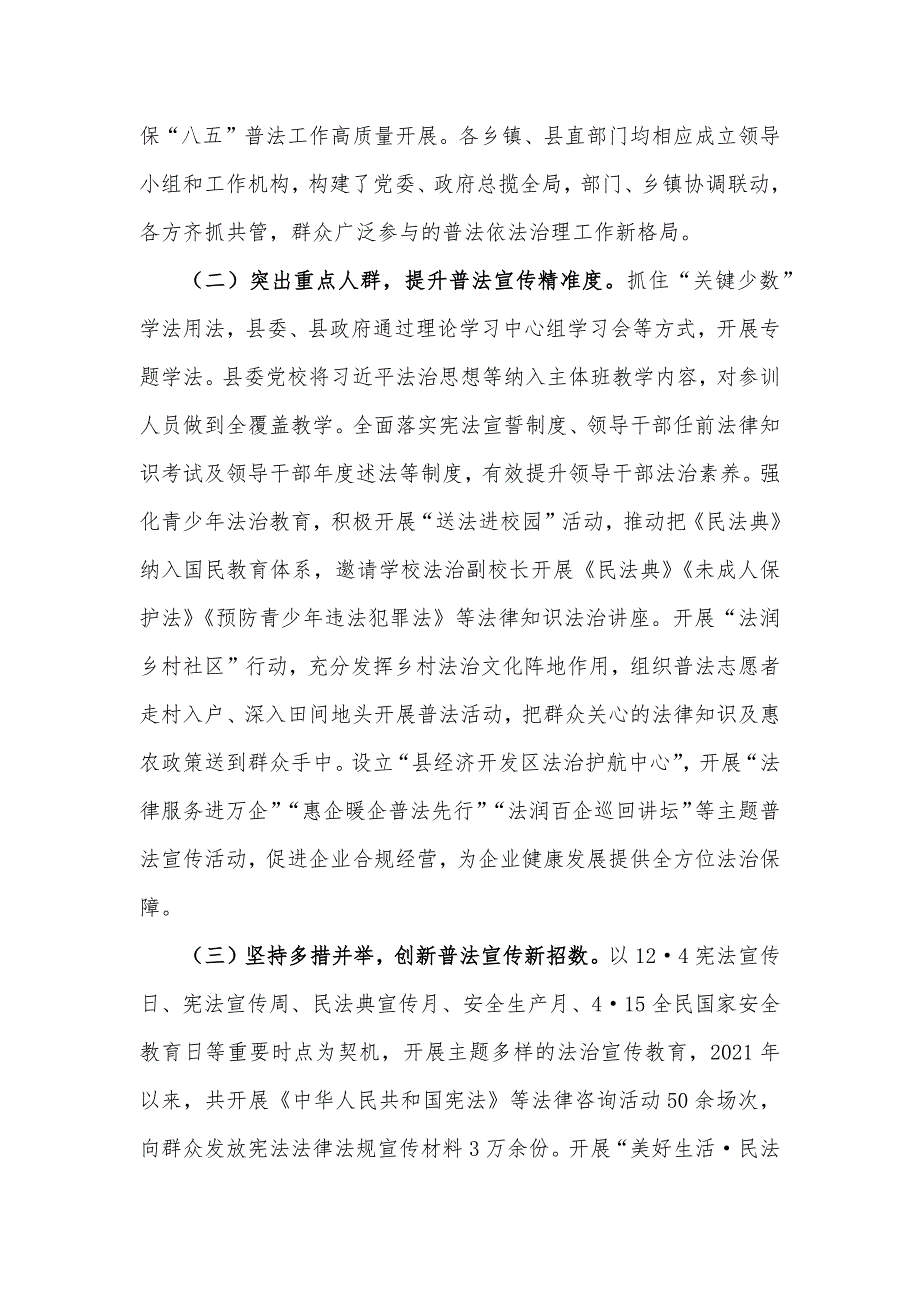 保“八五”普法工作高质量开展。各乡镇、县直部门均相应成立领导
小组和工作机构，构建了党委、政府总揽全局，部门、乡镇协调联动，
各方齐抓共管，群众广泛参与的普法依法治理工作新格局。
（二）突出重点人群，提升普法宣传精准度。抓住“关键少数”
学法用法，县委、县政府通过理论学习中心组学习会等方式，开展专
题学法。县委党校将习近平法治思想等纳入主体班教学内容，对参训
人员做到全覆盖教学。全面落实宪法宣誓制度、领导干部任前法律知
识考试及领导干部年度述法等制度，有效提升领导干部法治素养。强
化青少年法治教育，积极开展“送法进校园”活动，推动把《民法典》
纳入国民教育体系，邀请学校法治副校长开展《民法典》《未成人保
护法》《预防青少年违法犯罪法》等法律知识法治讲座。开展“法润
乡村社区”行动，充分发挥乡村法治文化阵地作用，组织普法志愿者
走村入户、深入田间地头开展普法活动，把群众关心的法律知识及惠
农政策送到群众手中。设立“县经济开发区法治护航中心”，开展“法
律服务进万企”“惠企暖企普法先行”“法润百企巡回讲坛”等主题普
法宣传活动，促进企业合规经营，为企业健康发展提供全方位法治保
障。
（三）坚持多措并举，创新普法宣传新招数。以 12·4 宪法宣传
日、宪法宣传周、民法典宣传月、安全生产月、4·15 全民国家安全
教育日等重要时点为契机，开展主题多样的法治宣传教育，2021 年
以来，共开展《中华人民共和国宪法》等法律咨询活动 50 余场次，
向群众发放宪法法律法规宣传材料 3 万余份。开展“美好生活·民法